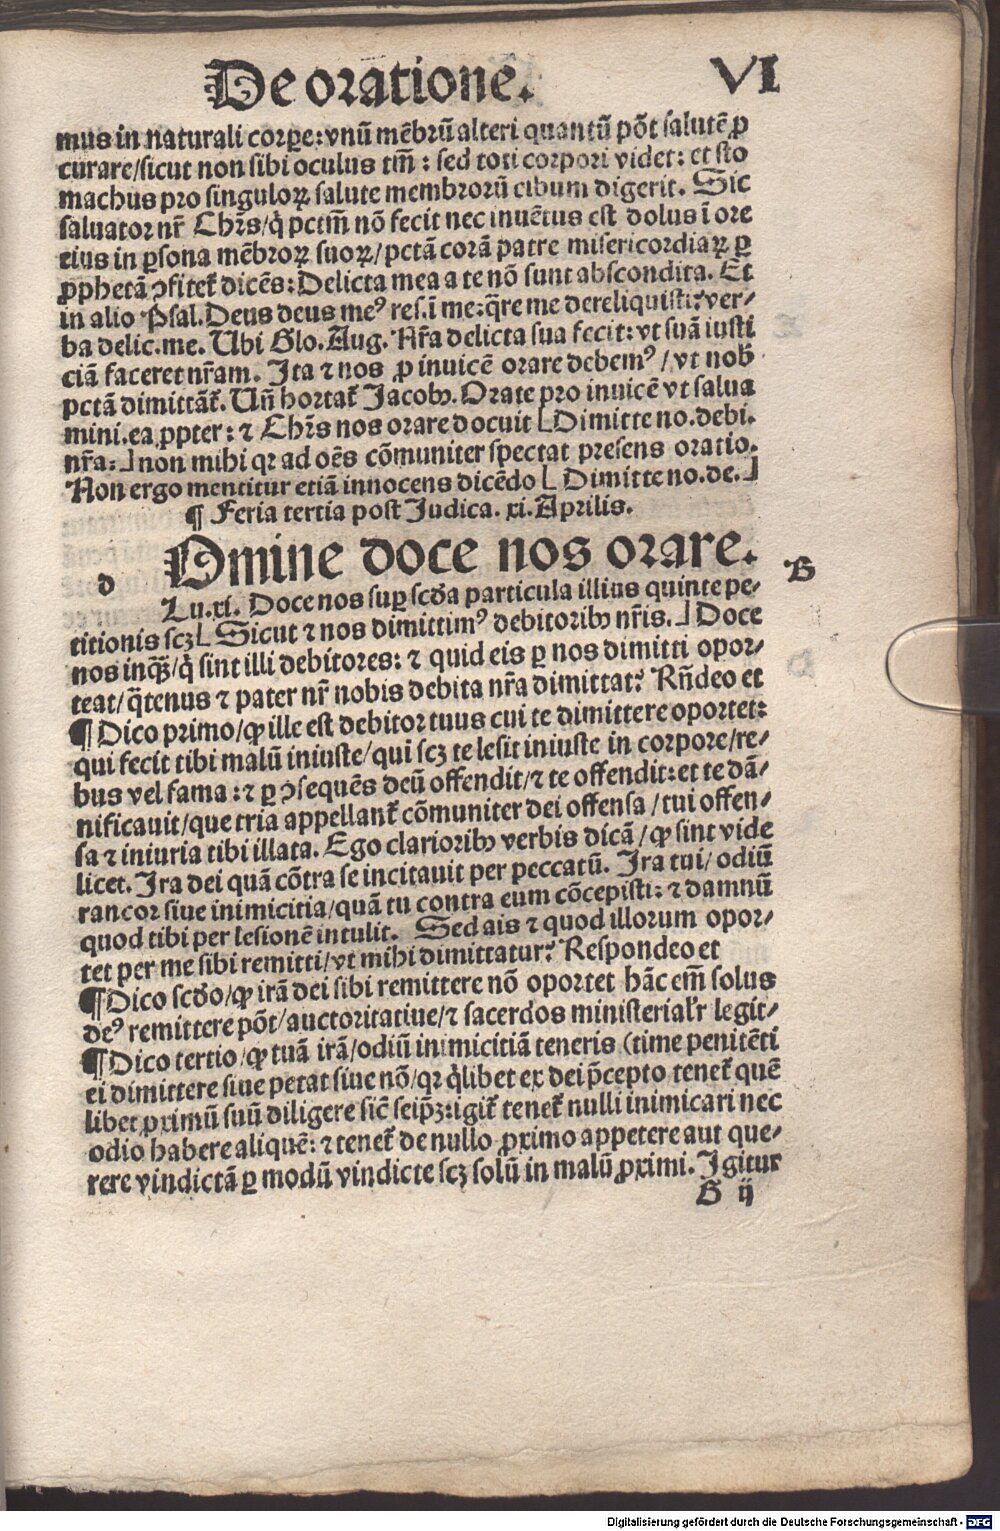 De oratione. VI
mus in naturali corꝑe: vnū mēbrū alteri quantū pōt salutē ꝓ
curare/sicut non sibi oculus tm̄: sed toti corpori videt: et sto
machus pro singuloꝝ salute membrorū cibum digerit. Sic
saluator nr̄ Chr̄s/q̇ pctm̄ nō fecit nec inuētus est dolus ī ore
eius in ꝑsona mēbroꝝ suoꝝ/pctā corā patre misericordiaꝝ ꝑ
ꝓphetā ꝯfitet᷑ dicēs: Delicta mea a te nō sunt abscondita. Et
in alio Psal. Deus deus meꝰ res.ī me: q̄re me dereliquisti? ver-
ba delic.me. Ubi Glo. Aug. Nr̄a delicta sua fecit: vt suā iusti
ciā faceret nr̄am. Ita ⁊ nos ꝓ inuicē orare debemꝰ/vt nob̄
pctā dimittāt᷑. Un̄ hortat᷑ Jacobꝫ. Orate pro inuicē vt salua
mini. ea ꝓpter: ⁊ Chr̄s nos orare docuit ⌊Dimitte no.debi.
nr̄a:⌋ non mihi qꝛ ad oēs cōmuniter spectat presens oratio.
Non ergo mentitur etiā innocens dicēdo ⌊Dimitte no.de.⌋
¶ Feria tertia post Judica. xi. Aprilis.
d Omine doce nos orare. B
Lu.xi. Doce nos suꝑ scd̄a particula illius quinte pe-
titionis scꝫ ⌊Sicut ⁊ nos dimittimꝰ debitoribꝫ nr̄is.⌋ Doce
nos inqꝫ̄/q̇ sint illi debitores: ⁊ quid eis ꝑ nos dimitti opor-
teat/q̄tenus ⁊ pater nr̄ nobis debita nr̄a dimittat? Rn̄deo et
¶ Dico primo/ꝙ ille est debitor tuus cui te dimittere oportet:
qui fecit tibi malū iniuste/qui scꝫ te lesit iniuste in corpore/re-
bus vel fama: ⁊ ꝑ ꝯsequēs deū offendit/⁊ te offendit: et te dā-
nificauit/que tria appellant᷑ cōmuniter dei offensa/tui offen-
sa ⁊ iniuria tibi illata. Ego clarioribꝫ verbis dicā/ꝙ sint vide
licet. Ira dei quā cōtra se incitauit per peccatū. Ira tui/odiū
rancor siue inimicitia/quā tu contra eum cōcepisti: ⁊ damnū
quod tibi per lesionē intulit. Sed ais ⁊ quod illorum opor-
tet per me sibi remitti/vt mihi dimittatur? Respondeo et
¶ Dico scd̄o/ꝙ irā dei sibi remittere nō oportet hāc em̄ solus
deꝰ remittere pōt/auctoritatiue/⁊ sacerdos ministerial'r legit-
¶ Dico tertio/ꝙ tuā irā/odiū inimicitiā teneris (time penitēti
ei dimittere siue petat siue nō/qꝛ q̇libet ex dei p̄cepto tenet᷑ quē
libet ꝓximū suū diligere sic̄ seip̄ꝫ: igit᷑ tenet᷑ nulli inimicari nec
odio habere aliquē: ⁊ tenet᷑ de nullo ꝓximo appetere aut que-
rere vindictā ꝑ modū vindicte scꝫ solū in malū ꝓximi. Igitur
B ij
Digitalisierung gefördert durch die Deutsche Forschungsgemeinschaft - DFG